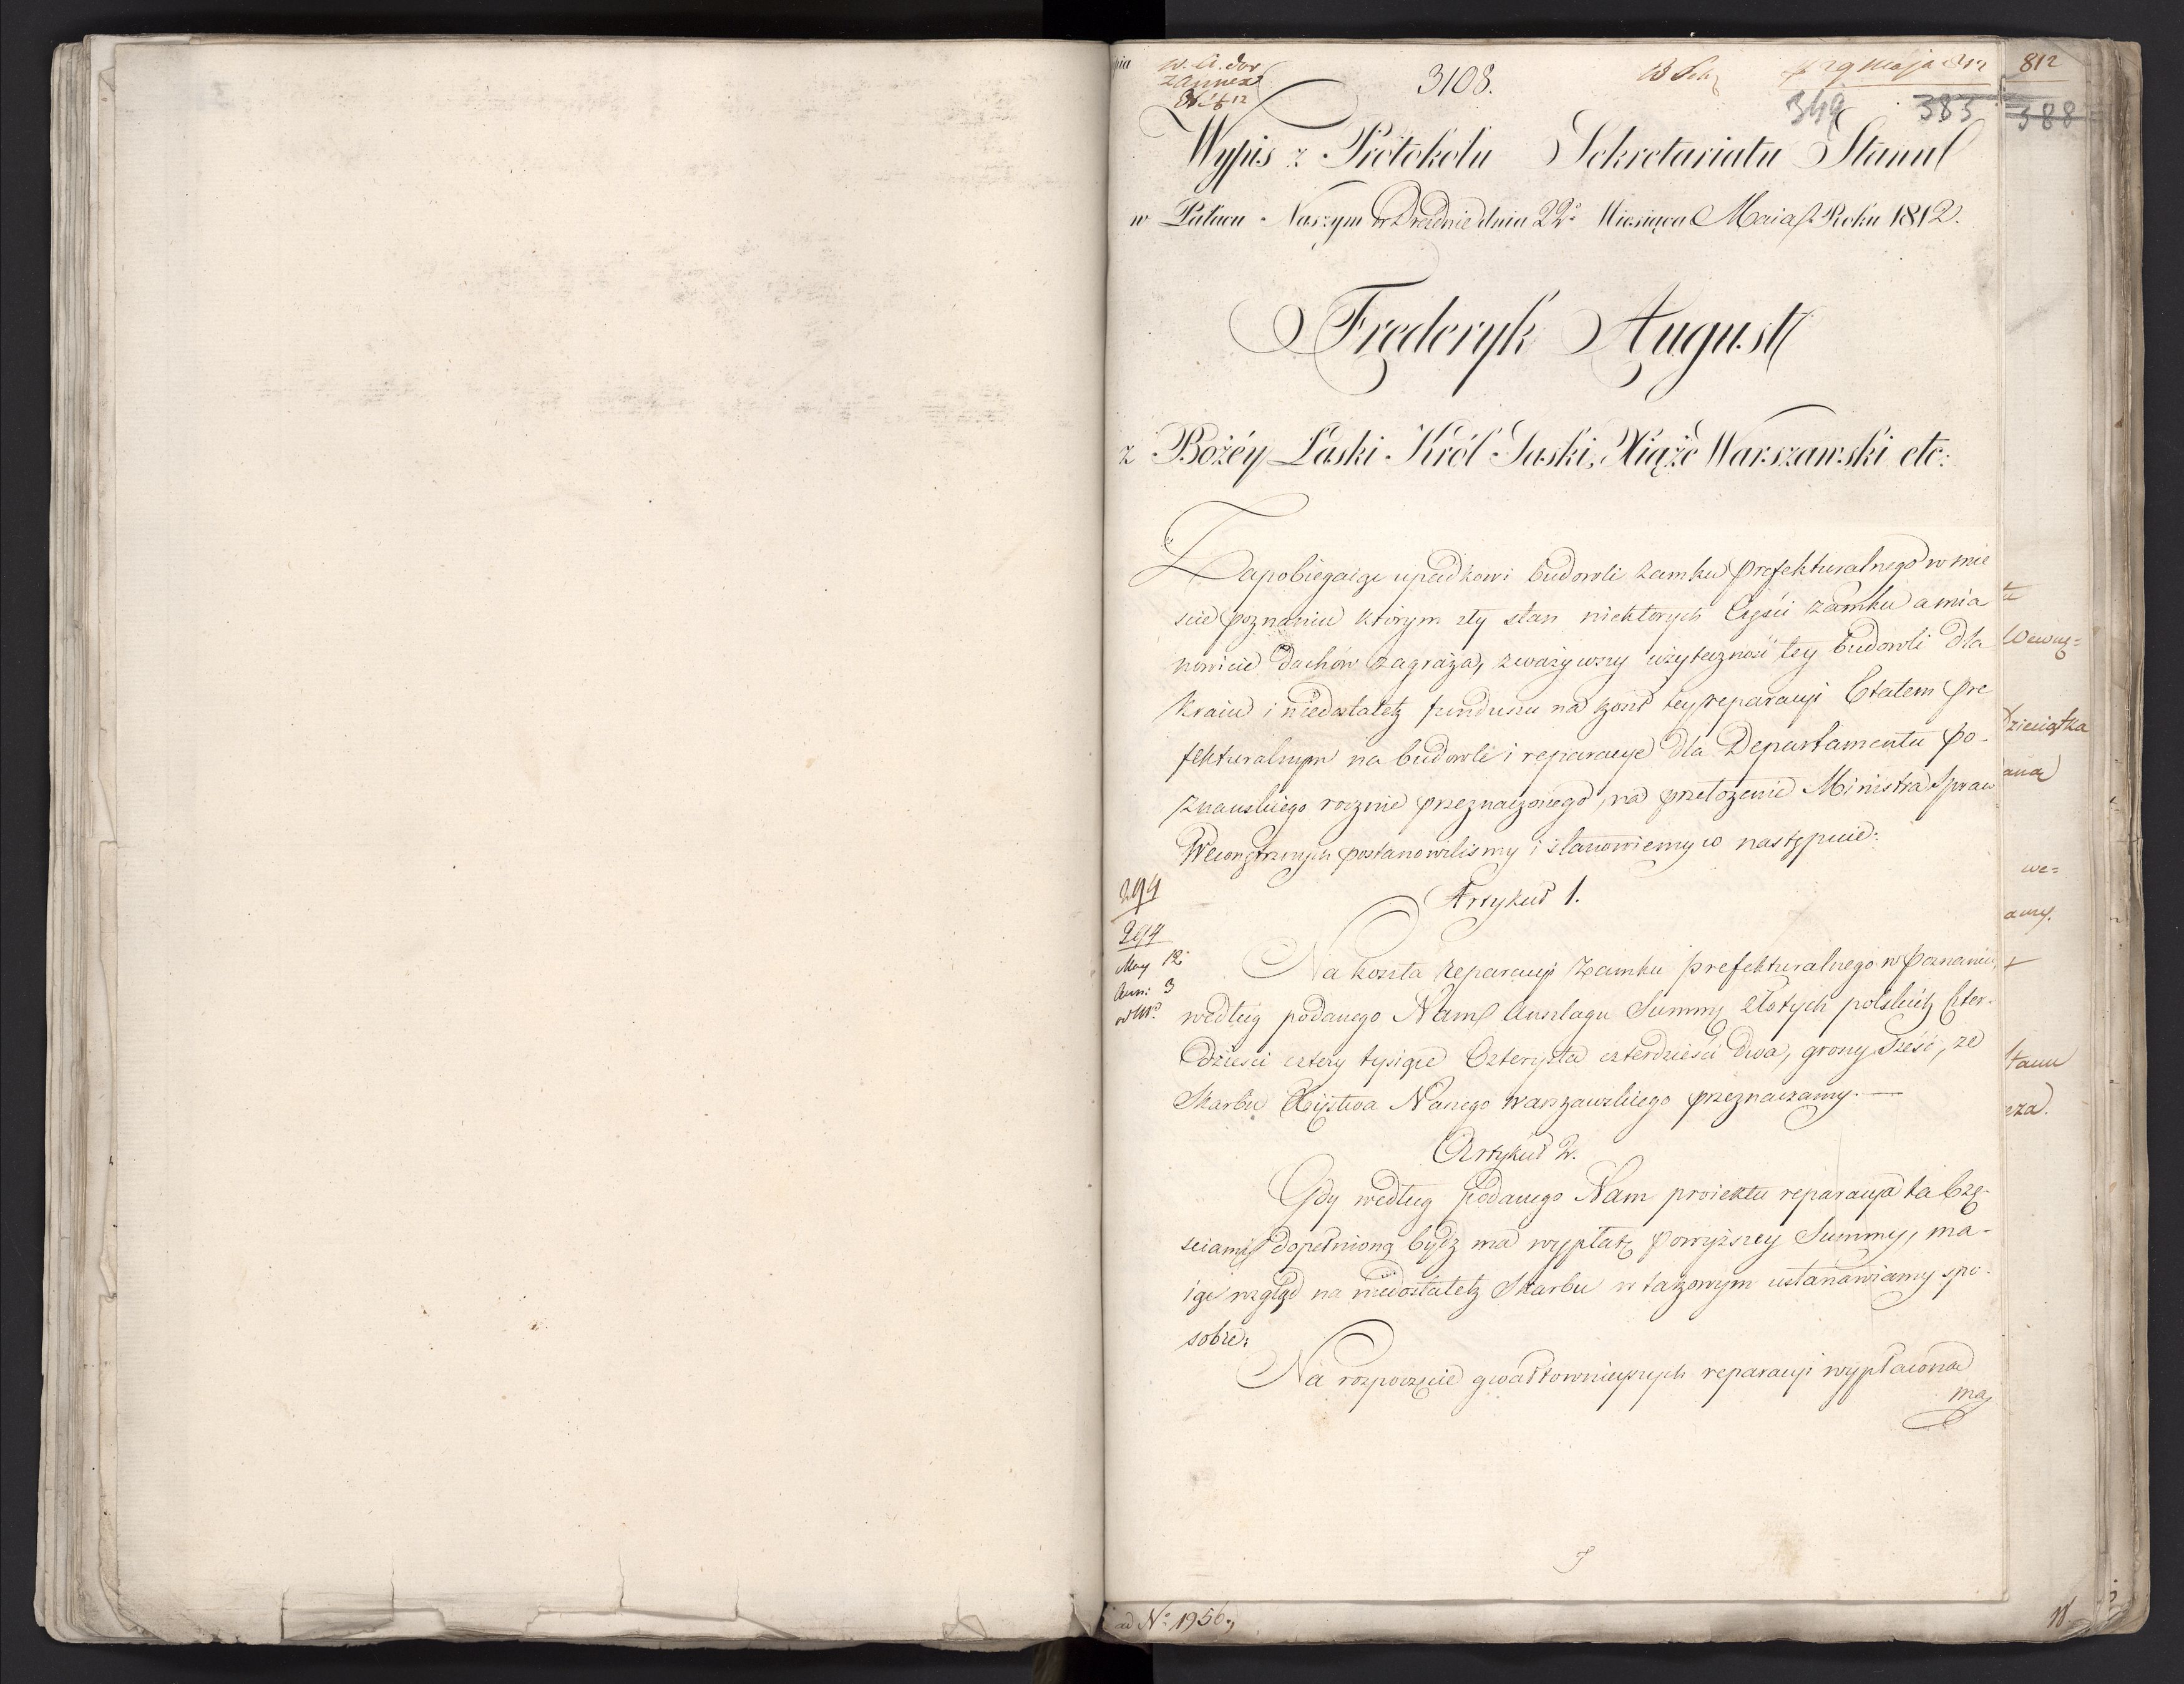 3108.
812
349 383 388
Wypis z Protokolu Sekretariatu Stanu
w Pałacu Naszym w Dreznie dnia 22° Miesiąca Maia Roku 1812.
Fryderyk August
z Bożéy Łaski Król Saski, Xiąże Warszawski etc:
Zapobiegaiąc upadkowi budowli zamku Prefekturalnego w mie
scie Poznaniu którym zły stan niektorych Części zamku a mia
nowicie Dachów zagraża, zważywszy użyteczność tey budowli dla
Kraiu i niedostatek funduszu na koszt tey reparacyi Etatem Pre
fekturalnym na budowle i reparacye dla Departamentu Po-
znańskiego rocznie przeznaczonego, na przełożenie Ministra Spraw
Wewnętrznych postanowilismy i stanowiemy co następuie:
Artykuł 1.
294
294
May 12
Ann: 3
Na koszta reparacyi Zamku prefekturalnego w Poznaniu,
według podanego Nam Anszlagu Summę złotych polskich Czter-
dzieści cztery tysiące Czterysta czterdzieści dwa, groszy sześć, ze
Skarbu Xięstwa Naszego Warszawskiego przeznaczamy.—
Artykuł 2.
Gdy według podanego Nam proiektu reparacya ta Czę-
sciami dopełnioną bydź ma wypłatę powyższey Summy, ma-
iąc wzgląd na niedostatek Skarbu w takowym ustanawiamy spo-
sobie:
Na rozpoczęcie gwałtownieyszych reparacyi wypłacona
ma
ad N° 1956,
Wewnę=
dzieiątka
we=